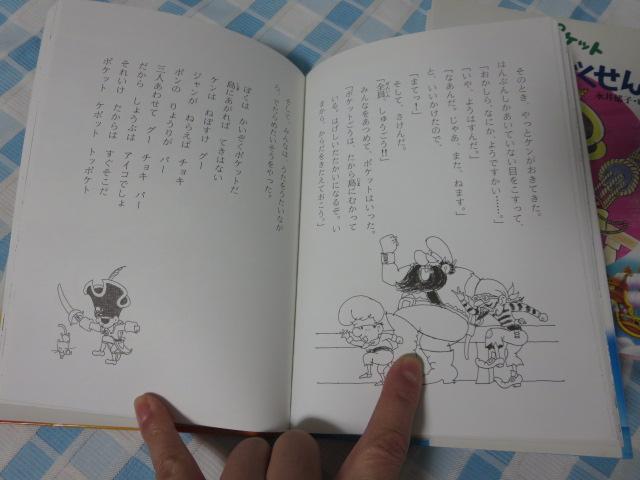 そのとき、やっとケンがおきてきた。
はんぶんしかあいていない目をこすって、
「おかしら、なにか、ようですかい……。」
「いや、ようはすんだ。」
「なあんだ。じゃあ、また、ねます。」
と、いいかけたので、
「まてっ！」
そして、さけんだ。
「全員、しゅうごう!!」
みんなをあつめて、ポケットはいった。
「ポケットごうは、たから島にむかって
いる。はげしいたたかいになるぞ。い
まから、からだをきたえておこう。」
そして、みんなは、うたをうたいなが
ら、でたらめたいそうをやった。
ぼくは かいぞくポケットだ
島にあがれば てきはない
ケンは ねぼすけ グー
ジャンが ねらえば チョキ
ポンの りょうりが パー
三人あわせて グー チョキ パー
だから しょうぶは アイコでしょ
それいけ たからは すぐそこだ
ポケット ケポット トッポケト
ケット
くせん
永井郁子・